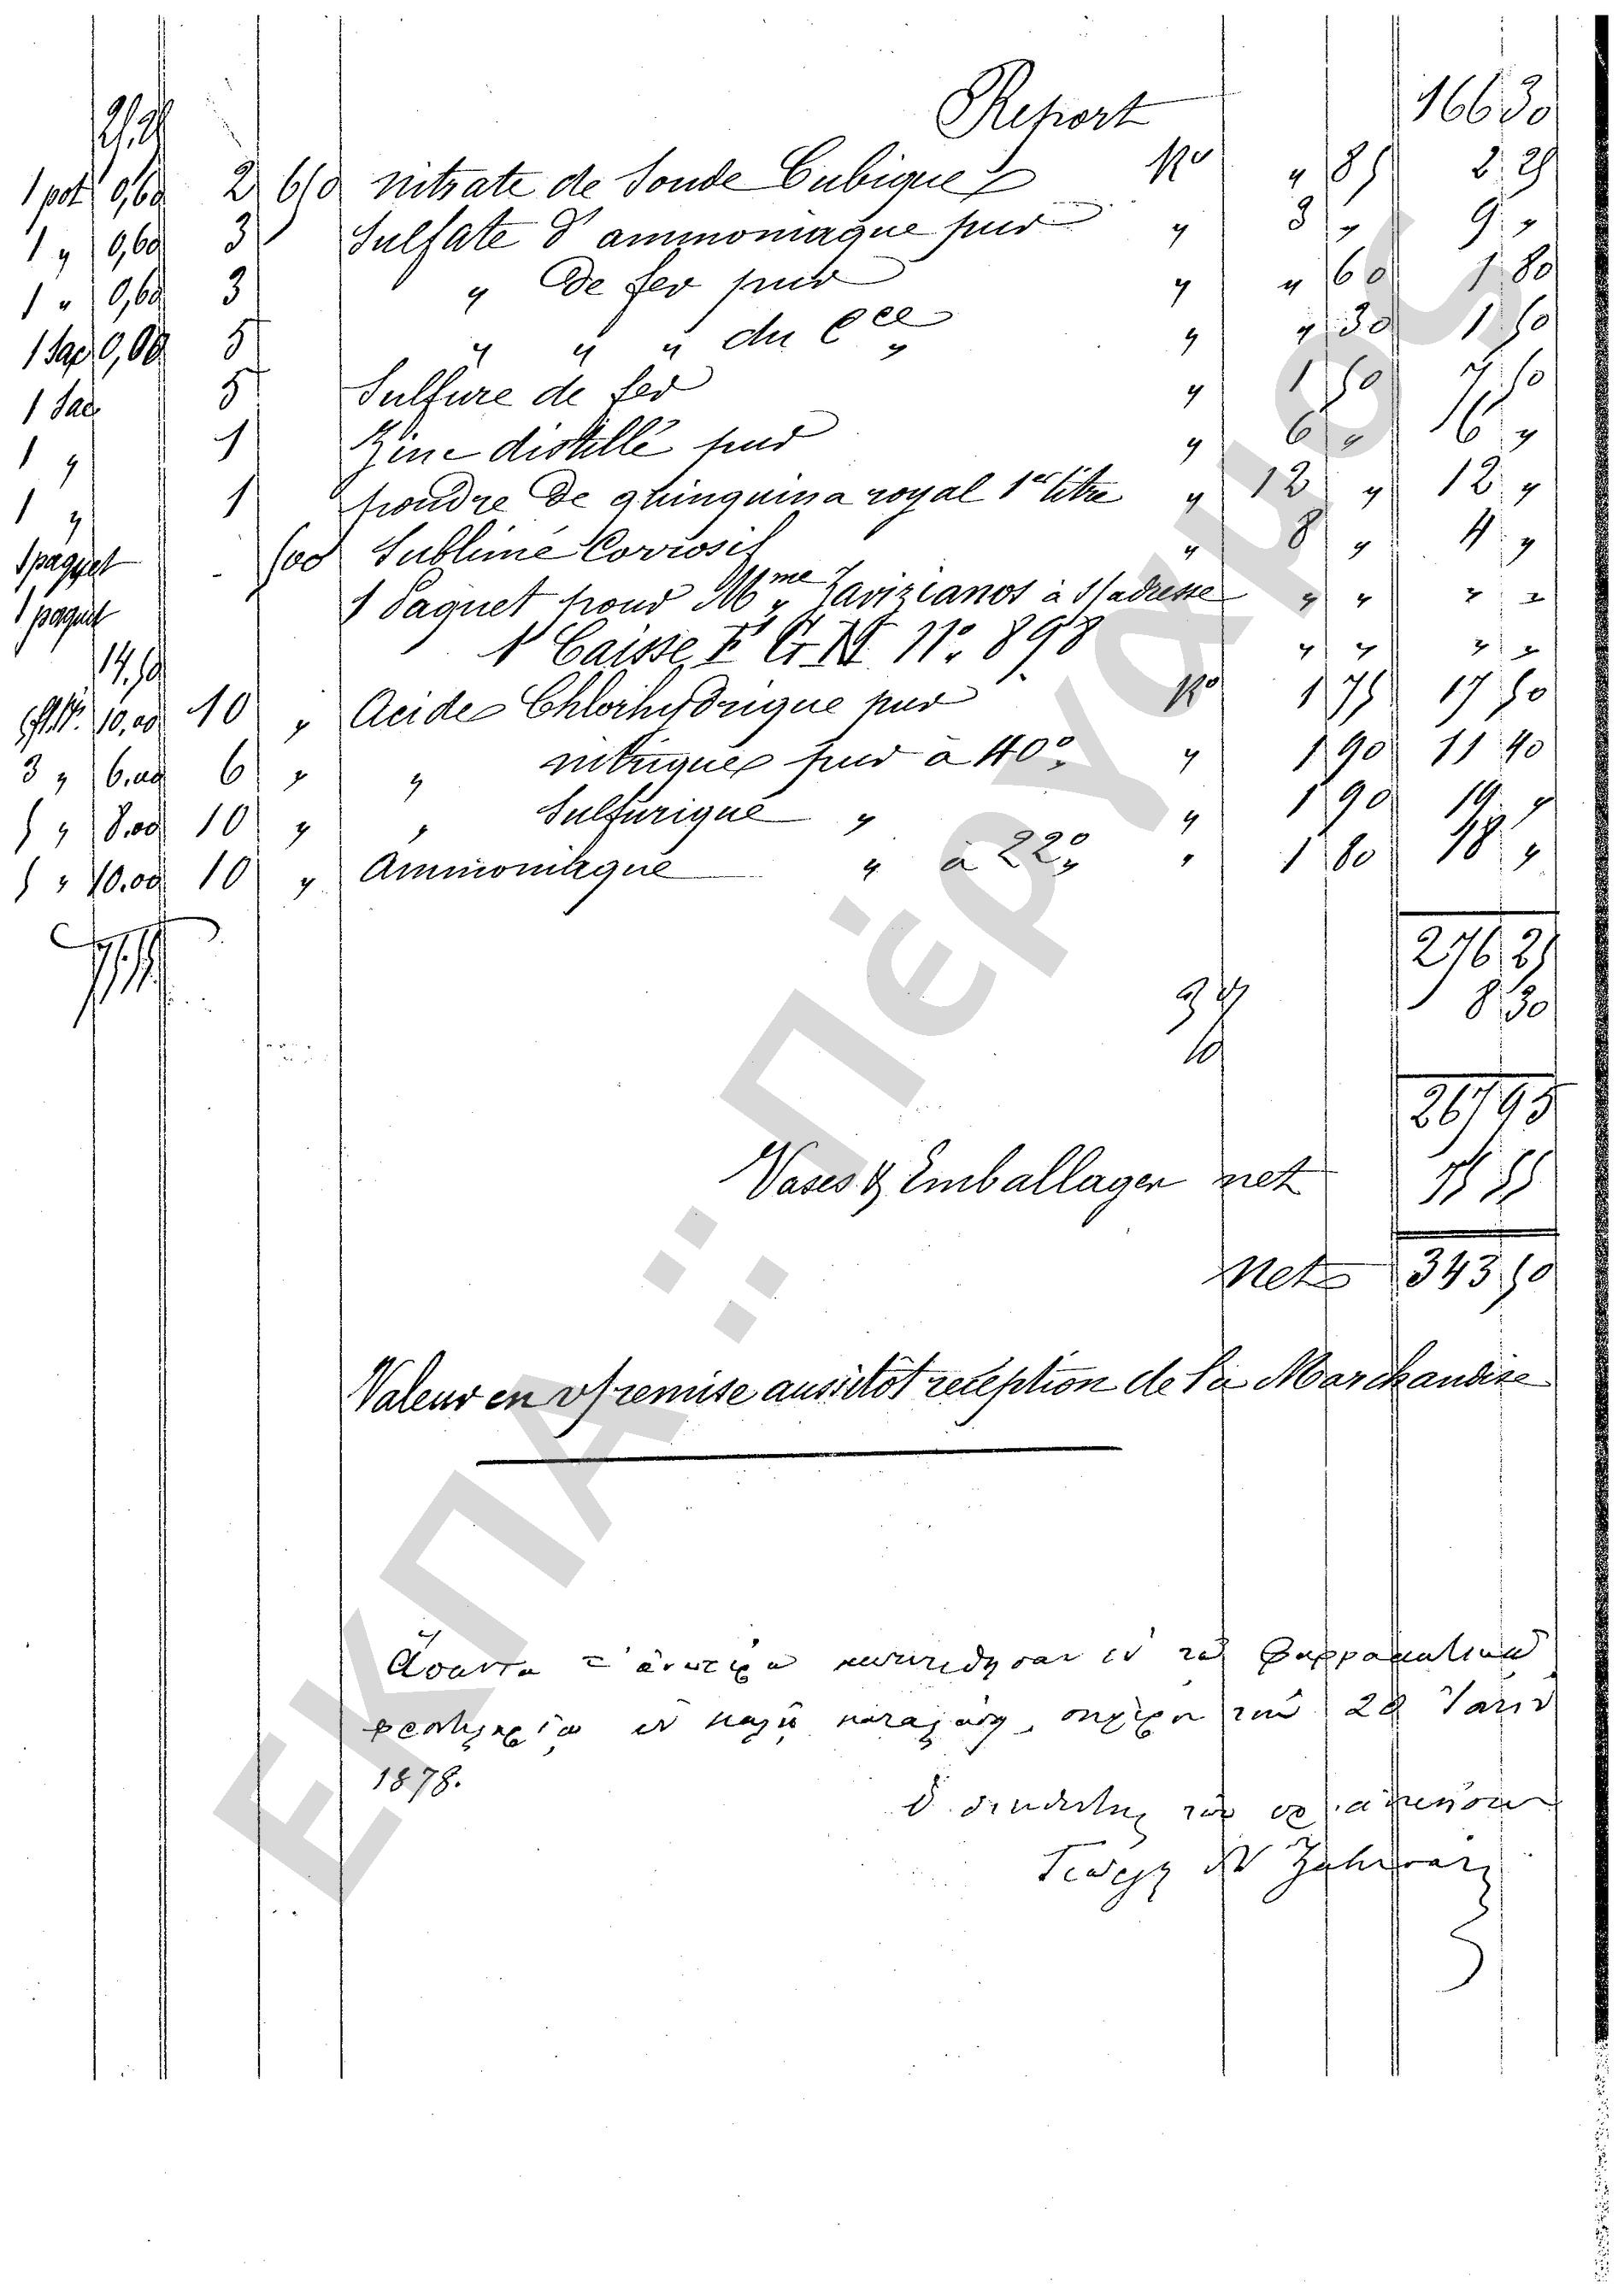 Report 166 30
1 pot 0,60 2 650 nitrate de Soude Cubique Ko " 85 2 25
1 " 0,60 3 Sulfate d'ammoniaque pur " 3 " 9 "
1 " 0,60 3 " de fer pur " " 60 1 80
1 Sac 0,00 5 " " " du Cce " " 30 1 50
1 Sac 5 Sulfure de fer " 1 50 7 50
1 " 1 Zinc distillé pur " 6 " 6 "
1 " 1 poudre de quinquina royal 1er titre " 12 " 12 "
1 paquet - 500 Sublimé Corrosif " 8 " 4 "
1 paquet 1 Paquet pour Mme Zavizianos à S/adresse " " " "
1 Caisse F G N No. 898 " " " "
14,50
10,00 10 " Acide Chlorhydrique pur Ko 1 75 17 50
3 " 6.00 6 " " nitrique pur à 40° " 1 90 11 40
5 " 8.00 10 " " Sulfurique " " 1 90 19 "
5 " 10.00 10 " Ammoniaque " à 22° " 1 80 18 "
276 25
3 % 8 30
267 95
Vases & Emballages net 75 55
Net 343 50
Valeur en v/ remise aussitôt réception de la Marchandise
Ἅπαντα τ' ἀνωτέρω ἐν τῷ
ἐν καλῇ καταστάσει, σήμερον τὴν 28
1878.
Ὁ διευθυντὴς τοῦ
ΕΚΠΑ :: Πέργαμος